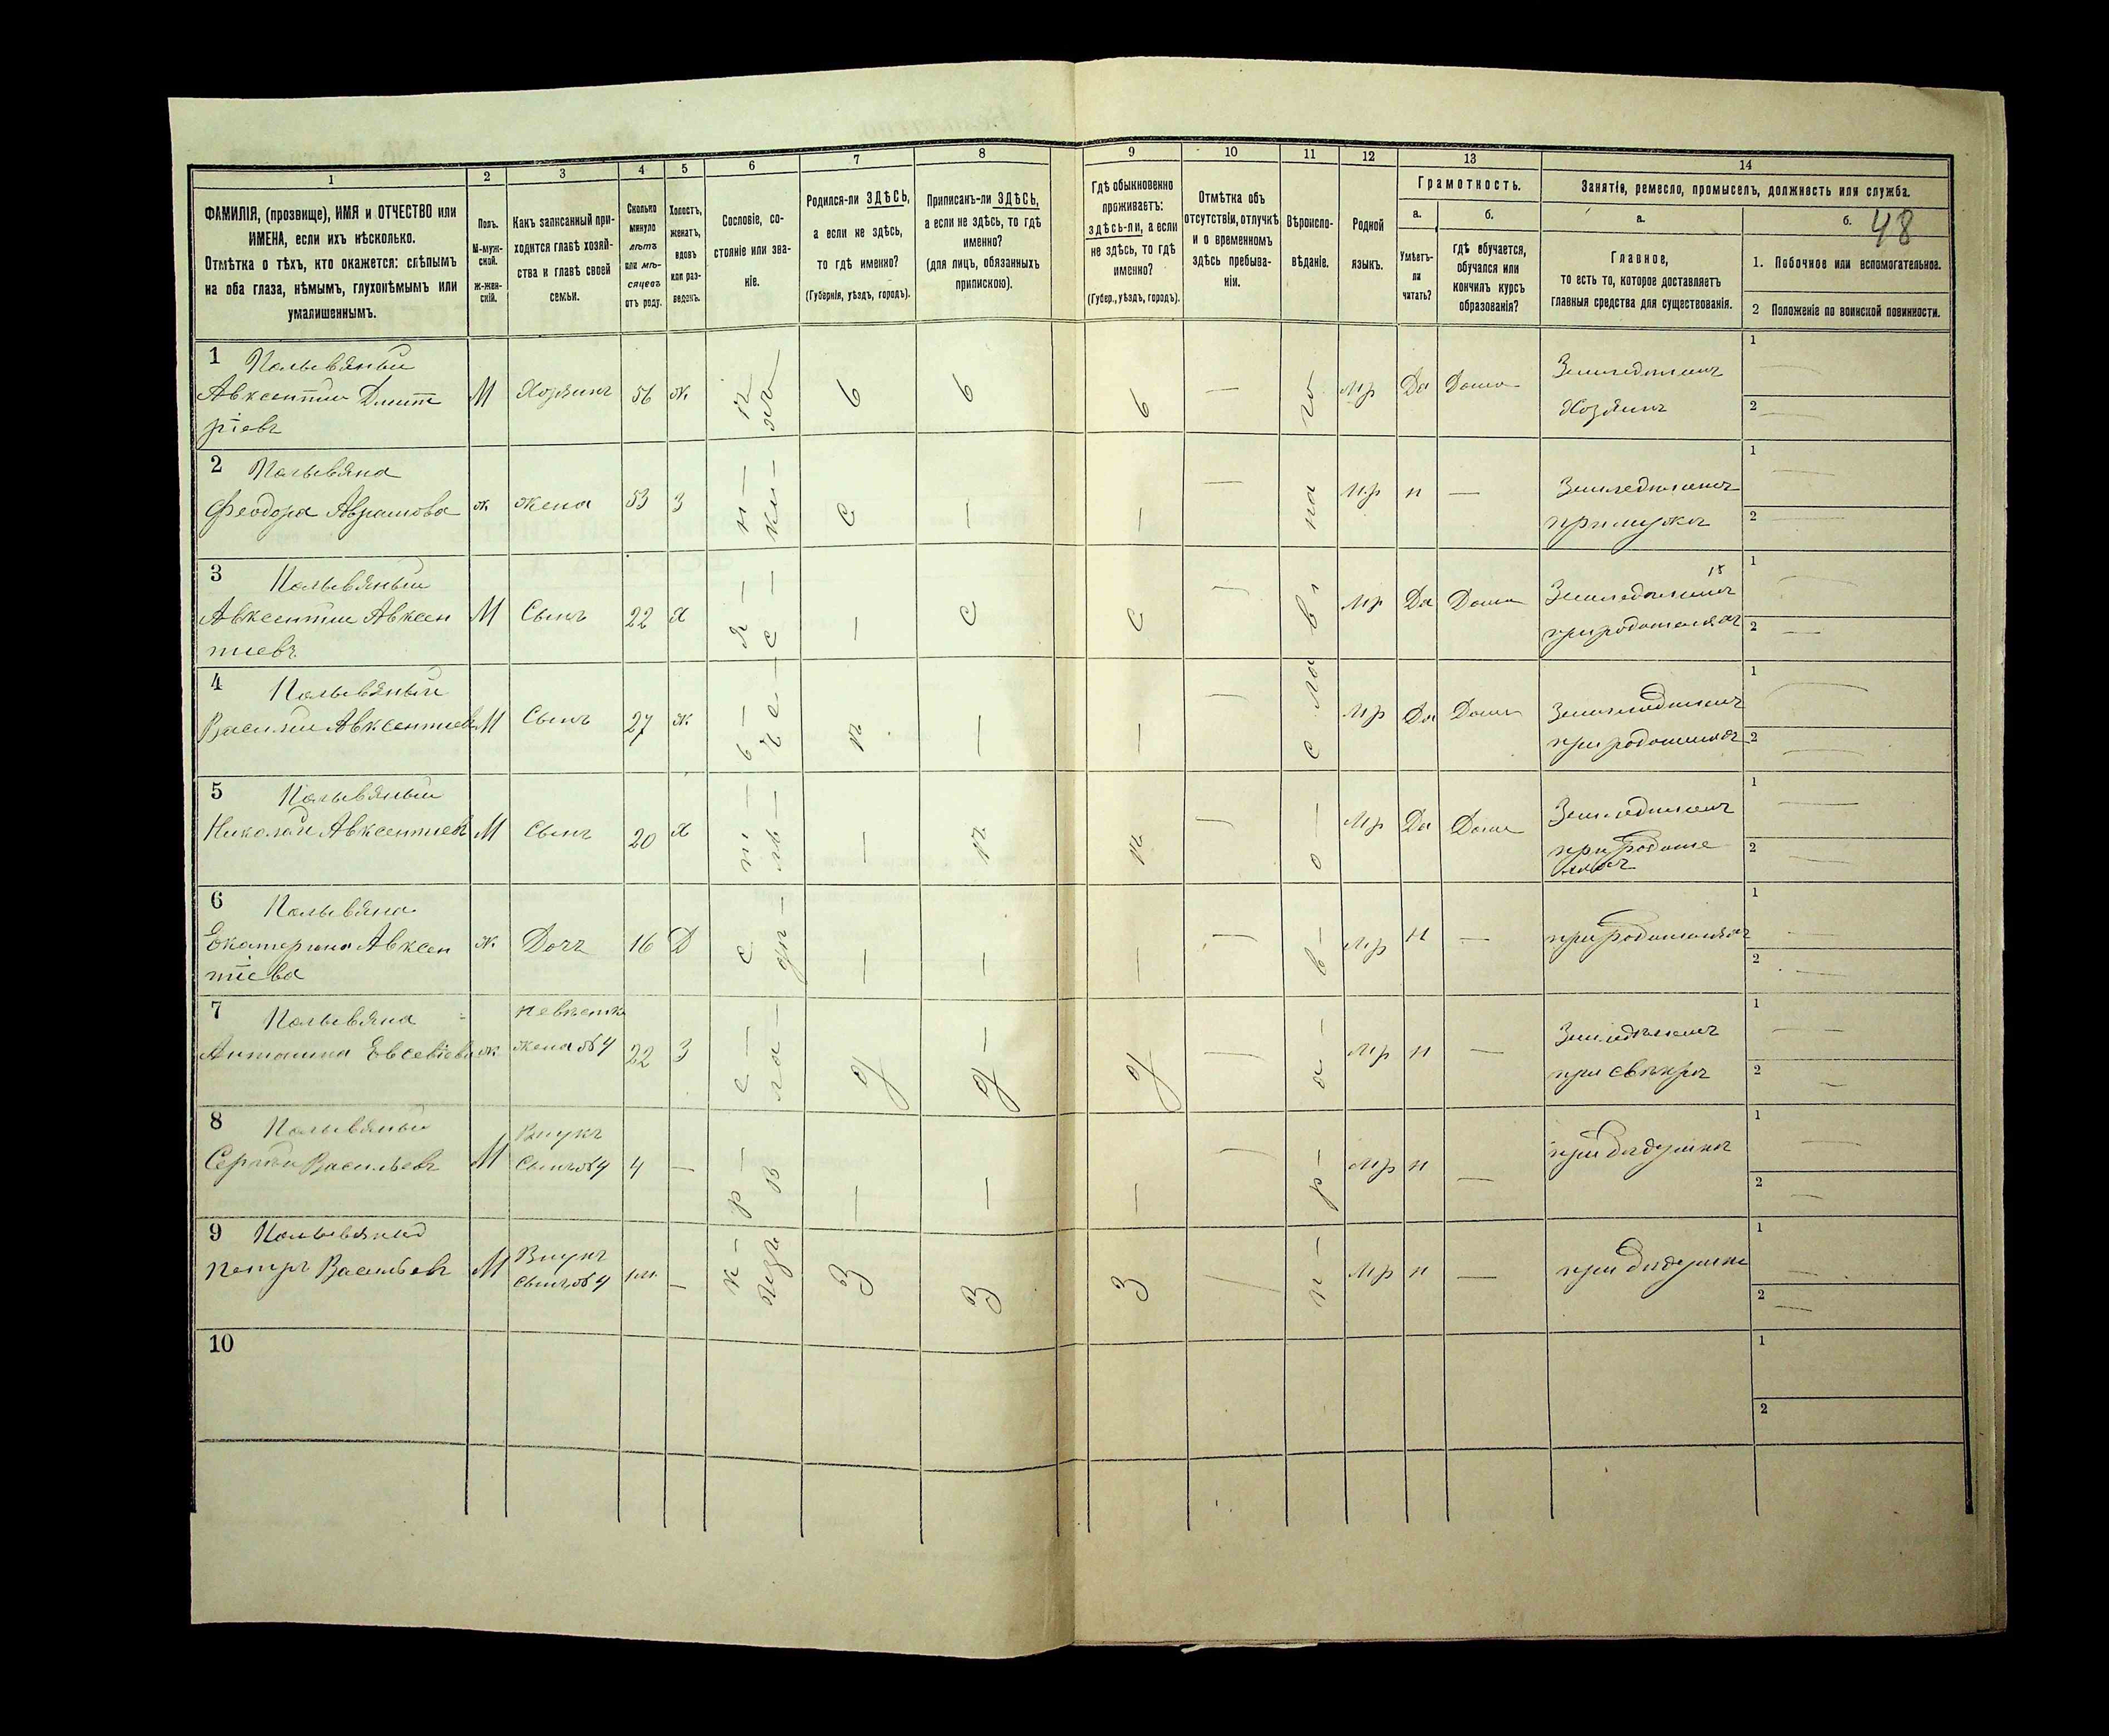 1
2
3
4
5
6
7
8
9
10
11
12
13
14
ФАМИЛІЯ, (прозвище), ИМЯ и ОТЧЕСТВО или
ИМЕНА, если ихъ нѣсколько.
Отмѣтка о тѣхъ, кто окажется: слѣпымъ
на оба глаза, нѣмымъ, глухонѣмымъ или
умалишеннымъ.
Полъ.
М-муж-
ской.
Ж-жен-
скій.
Какъ записанный при-
ходится главѣ хозяй-
ства и главѣ своей
семьи.
Сколько
минуло
лѣтъ
или мѣ-
сяцевъ
отъ роду.
Холостъ,
женатъ,
вдовъ
или раз-
веденъ.
Сословіе, со-
стояніе или зва-
ніе.
Родился-ли ЗДѢСЬ,
а если не здѣсь,
то гдѣ именно?
(Губернія, уѣздъ, городъ).
Приписанъ-ли ЗДѢСЬ,
а если не здѣсь, то гдѣ
именно?
(для лицъ, обязанныхъ
припискою).
Гдѣ обыкновенно
проживаетъ:
здѣсь-ли, а если
не здѣсь, то гдѣ
именно?
(Губер., уѣздъ, городъ).
Отмѣтка объ
отсутствіи, отлучкѣ
и о временномъ
здѣсь пребыва-
ніи.
Вѣроиспо-
вѣданіе.
Родной
языкъ.
Грамотность.
а.
Умѣетъ-
ли
читать?
б.
гдѣ обучается,
обучался или
кончилъ курсъ
образованія?
Занятіе, ремесло, промыселъ, должность или служба.
а.
Главное,
то есть то, которое доставляетъ
главныя средства для существованія.
б.
48
1. Побочное или вспомогательное.
2 Положеніе по воинской повинности.
1
Авксентій Дмит
ріевъ
М Хозяинъ 56 ж
мр Да Дома
Земледѣлецъ
Хозяинъ
1
2
2
Феодора Аврамова ж жена 53 З
мр н —
Земледѣлецъ
при мужѣ
1
2
3
Авксентій Авксен
тіевъ
М Сынъ 22 х
мр Да Дома
Земледѣлецъ
при родителяхъ
1
2
4
Василій Авксентіевъ М Сынъ 27 ж
мр Да Дома
Земледѣлецъ
при родителяхъ
1
2
5
Николай Авксентіевъ М Сынъ 20 х
мр Да Дома
Земледѣлецъ
при родите
ляхъ
1
2
6
Екатерина Авксен
тіева
ж Дочь 16 Д
мр н —
при родителяхъ
1
2
7
Антонина Евсевіева ж
невѣстка
жена №4 22 З
мр н —
Земледѣлецъ
при свекрѣ
1
2
8
Сергѣй Васильевъ М
Внукъ
Сынъ №4 4 —
мр н —
при дѣдушкѣ
1
2
9
Петръ Васильевъ М
Внукъ
Сынъ №4 1м. —
мр н —
при дѣдушкѣ
1
2
10
1
2
здѣсь
здѣсь
здѣсь
православное